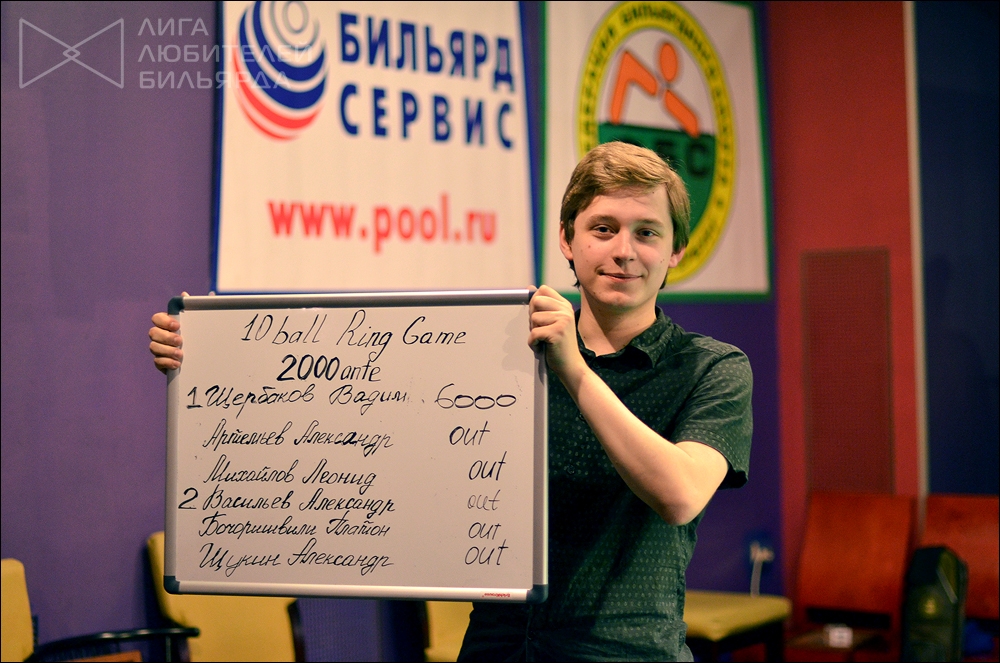 ЛИГА
ЛЮБИТЕЛЕЙ
БИЛЬЯРДА
БИЛЬЯРД
СЕРВИС
www.pool.ru
10 ball Ring Game
2000 ante
1 Щербаков Вадим 6000
Артемьев Александр out
Михайлов Леонид out
2 Васильев Александр out
Бочоришвили Платон out
Щукин Александр out